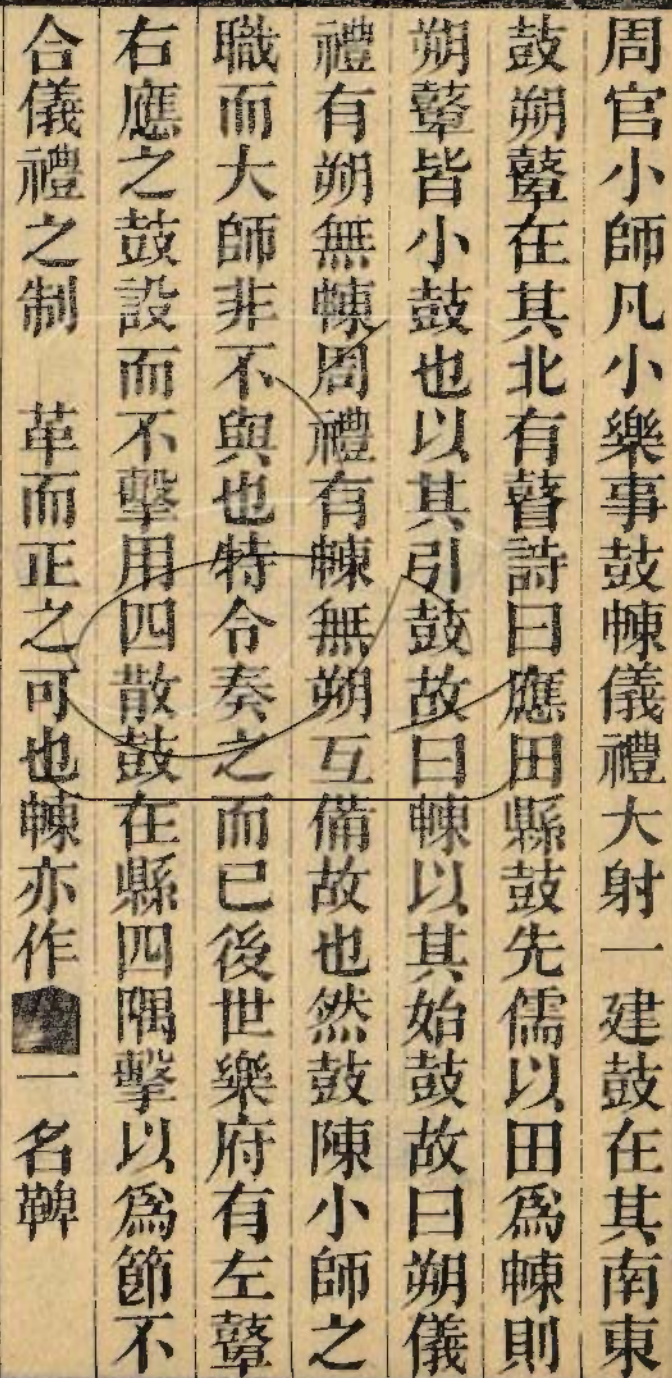 周官小師凡小樂事鼓朄儀禮大射一建鼓在其南東
鼓朔鼙在其北有瞽詩曰應田縣鼓先儒以田爲朄則
朔鼙皆小鼓也以其引鼓故曰朄以其始鼓故曰朔儀
禮有朔無朄周禮有朄無朔互備故也然鼓陳小師之
職而大師非不與也特令奏之而已後世樂府有左鼙
右應之鼓設而不擊用四散鼓在縣四隅擊以爲節不
合儀禮之制 革而正之可也朄亦作 一名鞞